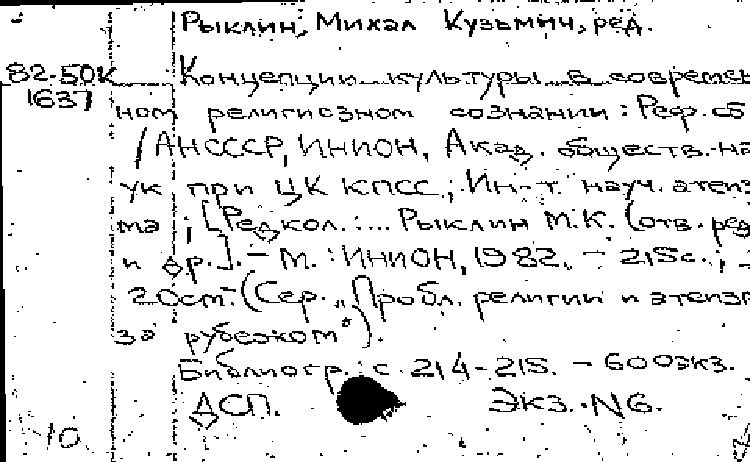 Рыклин, Михал Кузьмич, ред.
82-50К Концепции культуры в современ
1637 ном религиозном сознании : Реф. сб
/ АН СССР, ИНИОН, Акад. обществ. на
ук при ЦК КПСС, Ин-т науч. атеиз
ма ; [Редкол.: ... Рыклин М.К. (отв. ред
и др.]. - М. : ИНИОН, 1982. - 215с. ;
20см. - (Сер. "Пробл. религии и атеизм
за рубежом").
Библиогр.: с. 214-215. - 600экз.
ДСП. Экз. N6.
10